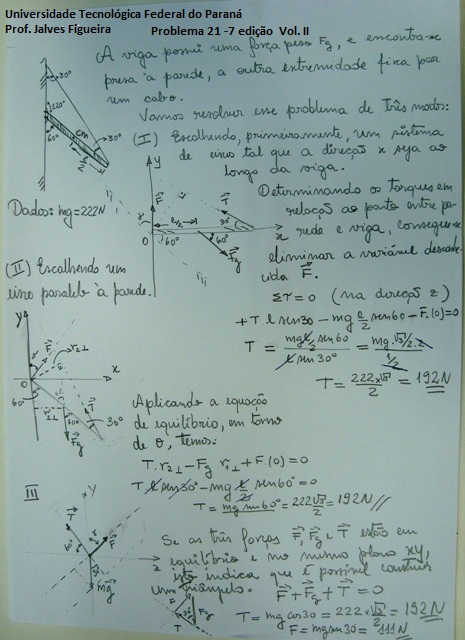 Universidade Tecnológica Federal do Paraná
Prof. Jalves Figueira Problema 21 -7 edição Vol. II
A viga possui uma força peso Fg, e encontra-se
presa à parede, a outra extremidade fixa por
um cabo.
Vamos resolver esse problema de três modos:
(I) Escolhendo, primeiramente, um sistema
de eixos tal que a direção x seja ao
longo da viga.
30°
120°
60°
cm
30°
Dados: mg=222N
y
F
T
l/2
30°
0
60°
60°
x
Fg
Determinando os torques em
relação ao ponto entre pa-
rede e viga, consegue-se
eliminar a variável desconhe-
cida F.
Στ=0 (na direção z)
+T l sen30 - mg l/2 sen60 - F.(0)=0
T = mg l/2 sen60 / l sen30° = mg.√3/2.2 / 1/2
T = 222x√3/2 = 192N
(II) Escolhendo um
eixo paralelo à parede.
y
F
r2⊥
x
0
60°
r1⊥
60°
T
30°
Fg
Aplicando a equação
de equilíbrio, em torno
de O, temos:
T.r2⊥ - Fg r1⊥ + F.(0)=0
T l sen30° - mg l/2 sen60° = 0
T = mg sen60° = 222√3/2 = 192N //
III
y
T
F
60°
30°
mg
x
Se as três forças F, Fg e T estão em
equilíbrio e no mesmo plano xy,
isto indica que é possível construir
um triângulo.
F + Fg + T = 0
30°
Fg
F
T
T = mg cos30 = 222x√3/2 = 192N
F = mg sen30 = 111N